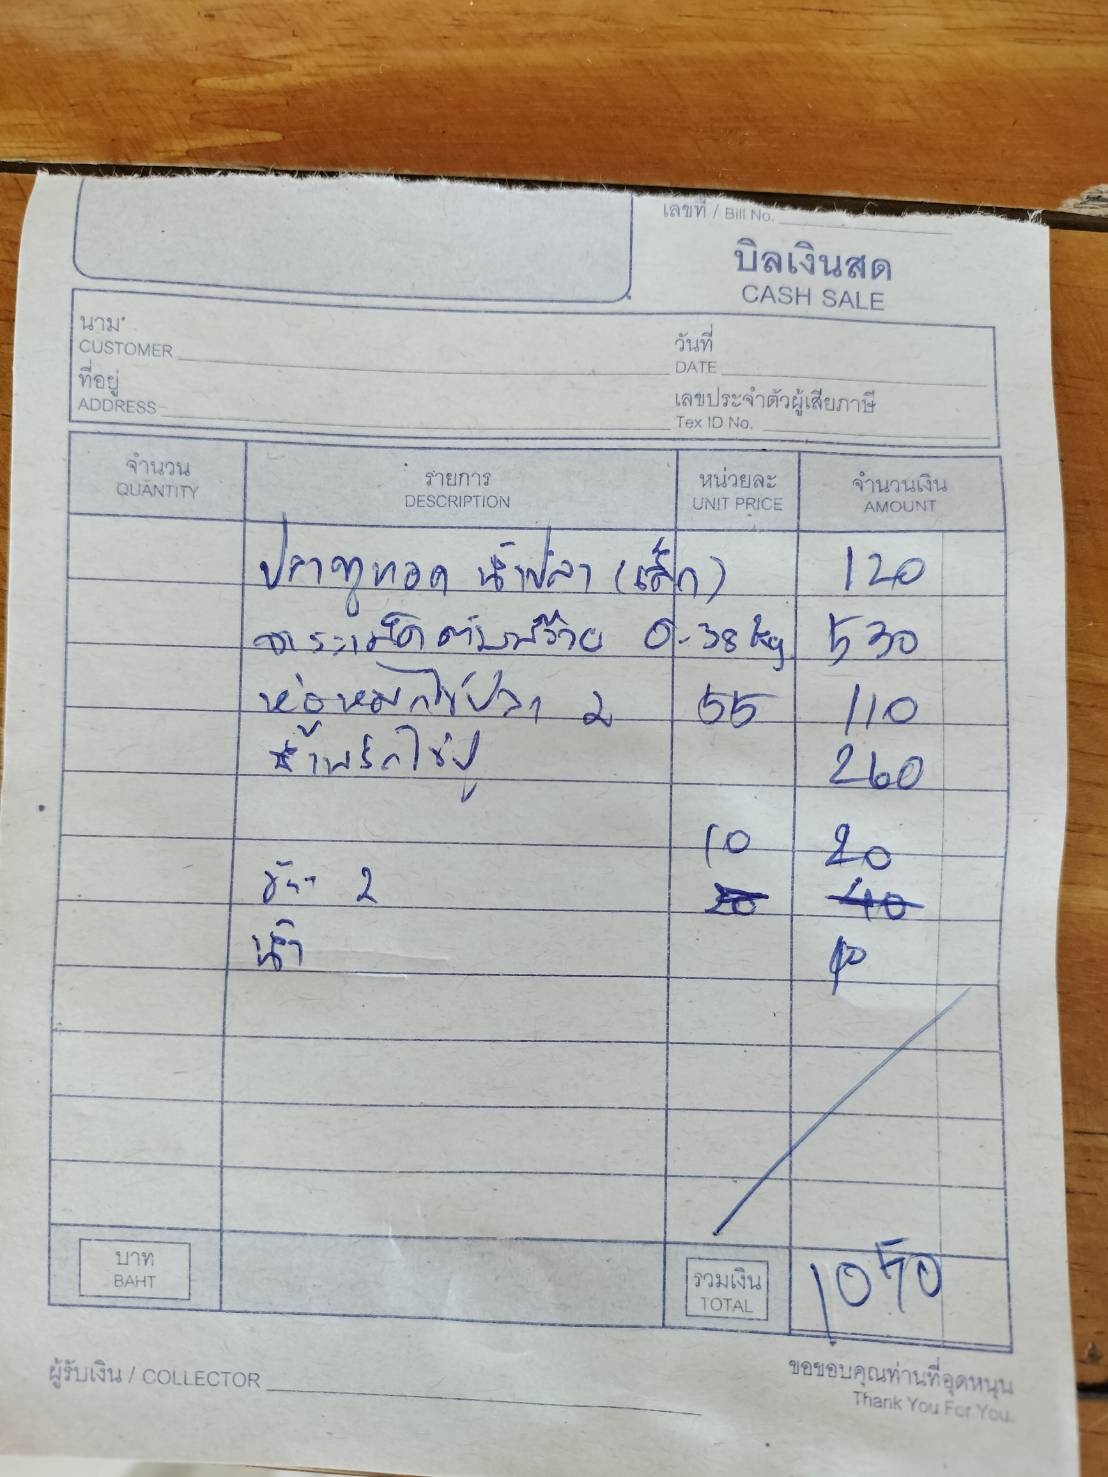 เลขที่ / Bill No.
บิลเงินสด
CASH SALE
นาม
CUSTOMER
วันที่
DATE
ที่อยู่
ADDRESS
เลขประจำตัวผู้เสียภาษี
Tex ID No.
จำนวน รายการ หน่วยละ จำนวนเงิน
QUANTITY DESCRIPTION UNIT PRICE AMOUNT
ปลาทูทอด น้ำปลา (เล็ก) 120
0.38 kg 530
ห่อหมกไข่ปลา 2 55 110
น้ำพริกไข่ปู 260
10 20
2 20 40
น้ำ 10
บาท
BAHT
รวมเงิน
TOTAL
1050
ผู้รับเงิน / COLLECTOR
ขอขอบคุณท่านที่อุดหนุน
Thank You For You.